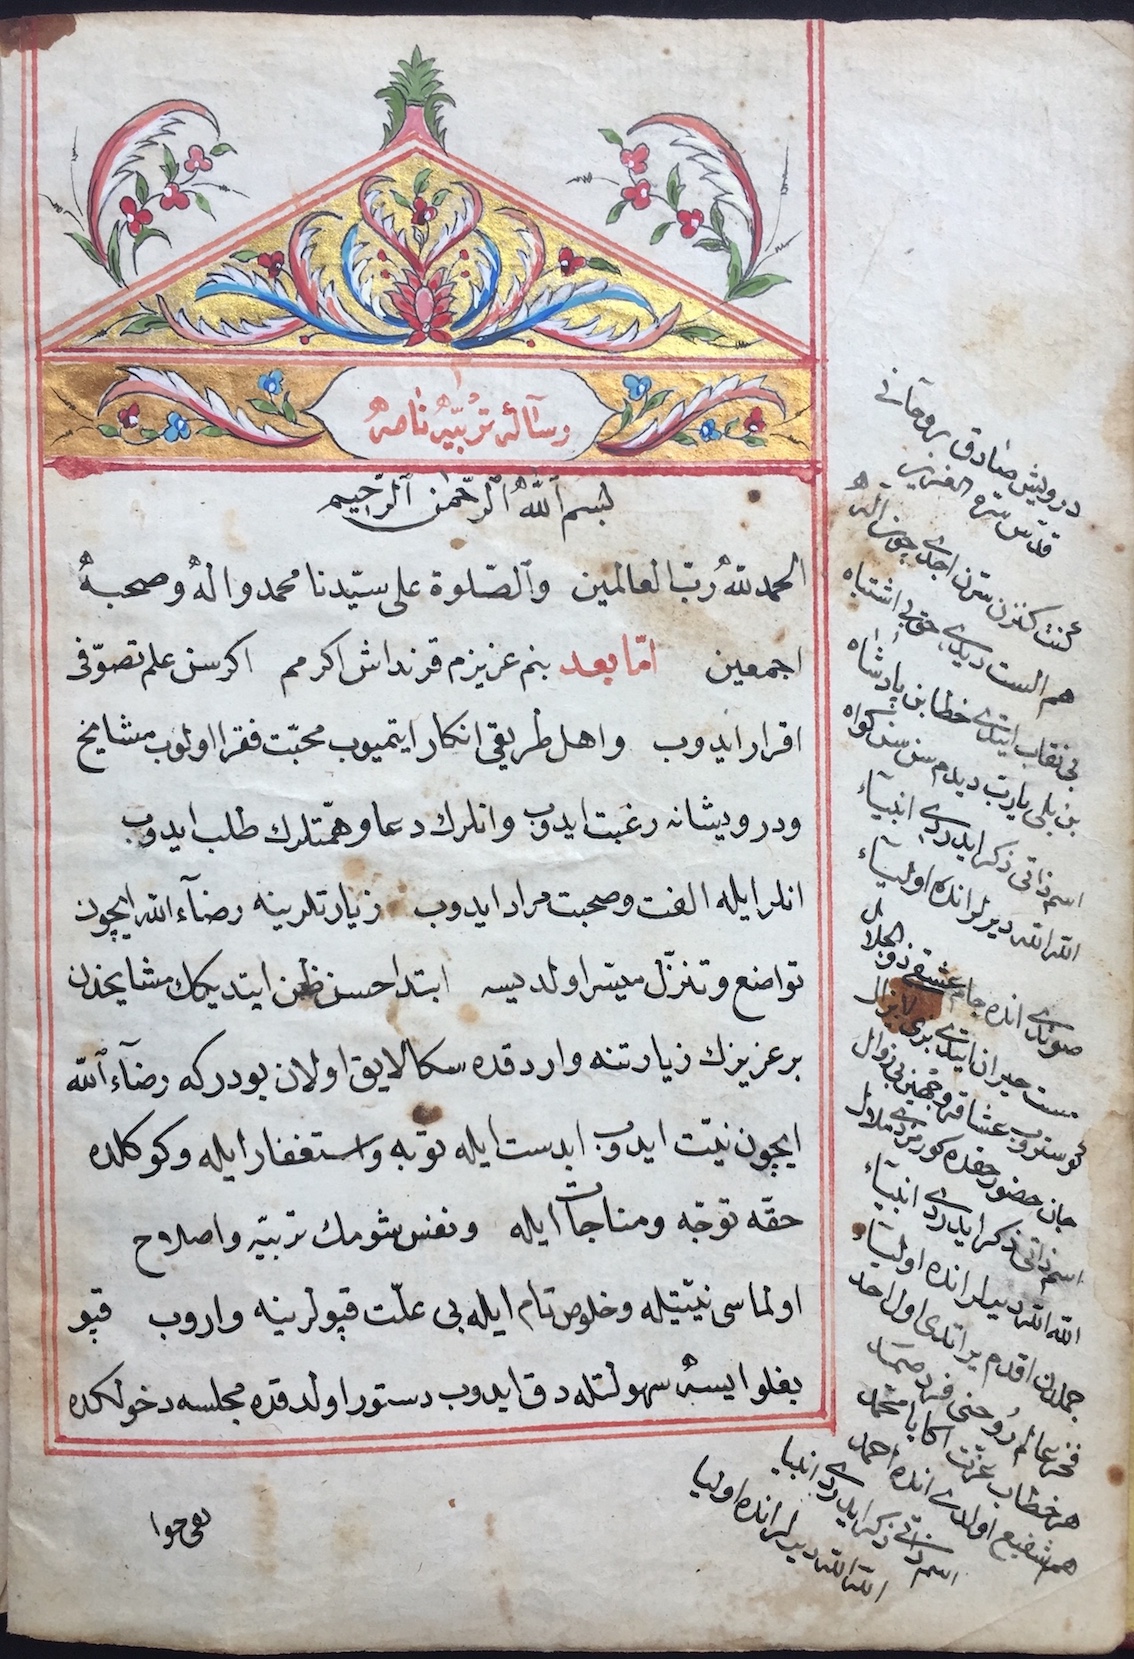 رسالهٔ تربیه نامه
بسم الله الرحمن الرحیم
الحمد لله رب العالمین والصلوة علی سیدنا محمد واله وصحبه
اجمعین اما بعد بنم عزیزم قرنداش اکرمم اکر سن علم تصوفی
اقرار ایدوب واهل طریقی انکار ایتمیوب محبت فقرا اولوب مشایخ
ودرویشانه رغبت ایدوب وانلرك دعا وهمتلرك طلب ایدوب
انلر ایله الفت وصحبت مراد ایدوب زیارتلرینه رضآء الله ایچون
تواضع وتنزل میسر اولدیسه ابتدا حسن ظن ایتدیکك مشایخدن
بر عزیزك زیارتنه واردقده سکا لایق اولان بودرکه رضآء الله
ایچون نیت ایدوب ابدست ایله توبه واستغفار ایله وکوکلده
حقه توجه ومناجات ایله ونفس شومك تربیه واصلاح
اولماسی نیتیله وخلوص تام ایله بی علت قپولرینه واروب قپو
بغلو ایسه سهولتله دق ایدوب دستور اولدقده مجلسه دخولکده
درویش صادق
قدس سره العزیز
کنت کنزن سرن اجدی چون اله
هم الست دیدی حق بی اشتباه
بی نقاب ایتدی خطاب بن پادشاه
بن بلی یا رب دیدم سن سك کواه
اسم ذاتی ذکر ایدردی انبیآء
الله الله دیرلر انده اولیآء
صوندی انده جام عشقی ذو الجلال
مست حیران ایتدی بزی لا یزال
کوستروب عشاقه وجهین بی زوال
جان حضور حقده کورمزدی ملال
اسم ذاتی ذکر ایدردی انبیآء
الله الله دیرلر انده اولیآء
جملدن اقدم یراتدی اول احد
فخر عالم روحنی فرد صمد
هر خطاب عزت اکا یا محمد
هم شفیع اولدی انده احمد
اسم ذاتی ذکر ایدردی انبیا
الله الله دیرلر انده اولیا